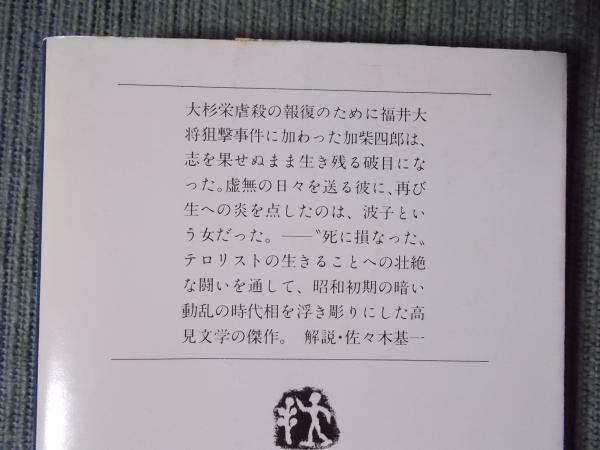 大杉栄虐殺の報復のために福井大
将狙撃事件に加わった加柴四郎は、
志を果せぬまま生き残る破目にな
った。虚無の日々を送る彼に、再び
生への炎を点したのは、波子とい
う女だった。――〝死に損なった〟
テロリストの生きることへの壮絶
な闘いを通して、昭和初期の暗い
動乱の時代相を浮き彫りにした高
見文学の傑作。 解説・佐々木基一